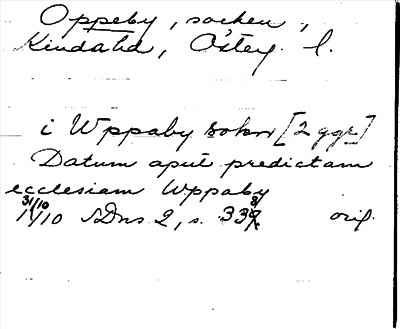 Oppeby, socken,
Kindahd, Österg. l.
i Wppaby sokn [2 ggr]
Datum aput predictam
ecclesiam Wppaby
31/10 SDns 2, s. 338 orig.